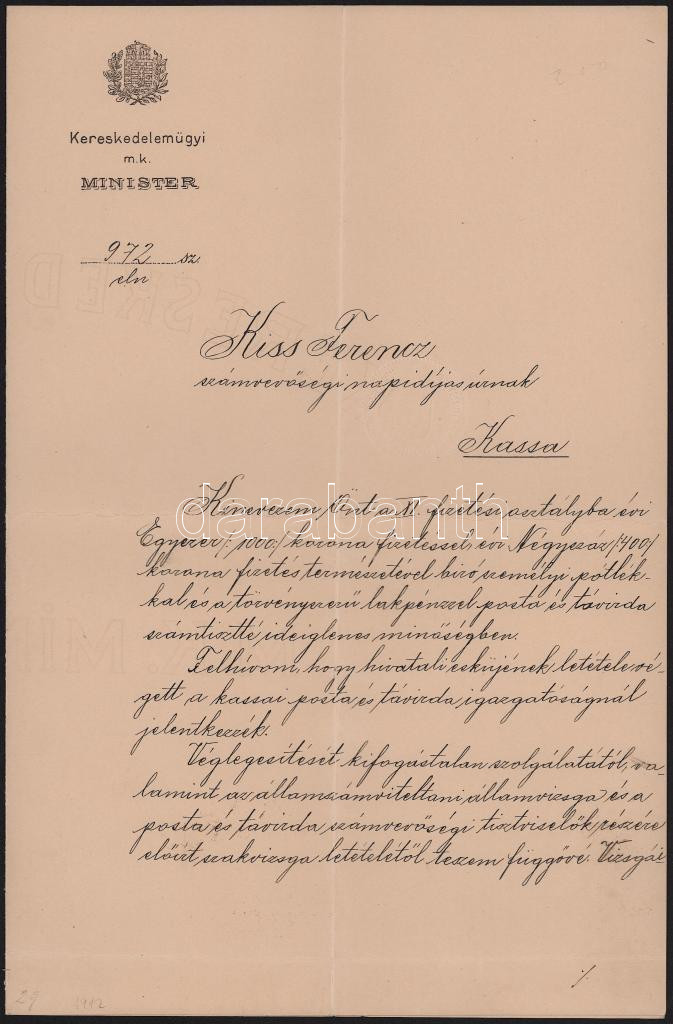 Kereskedelemügyi
m.k.
MINISTER
972 sz.
eln
Kiss Ferencz
számvevőségi napidíjas úrnak
Kassa
Kinevezem Önt a XI. fizetési osztályba évi
Egyezer /: 1000 :/ korona fizetéssel, évi Négyszáz /:400:/
korona fizetés természetével biró személyi pótlék-
kal és a törvényszerű lakpénzzel posta és távirda
számtisztté ideiglenes minőségben.
Felhívom, hogy hivatali esküjének letétele vé-
gett a kassai posta és távirda igazgatóságnál
jelentkezzék.
Véglegesítését kifogástalan szolgálatától, va-
lamint az államszámviteltani államvizsga és a
posta és távirda számvevőségi tisztviselők részére
előírt szakvizsga letételétől teszem függővé. Vizsgái-
./.
29 1912
darabanth